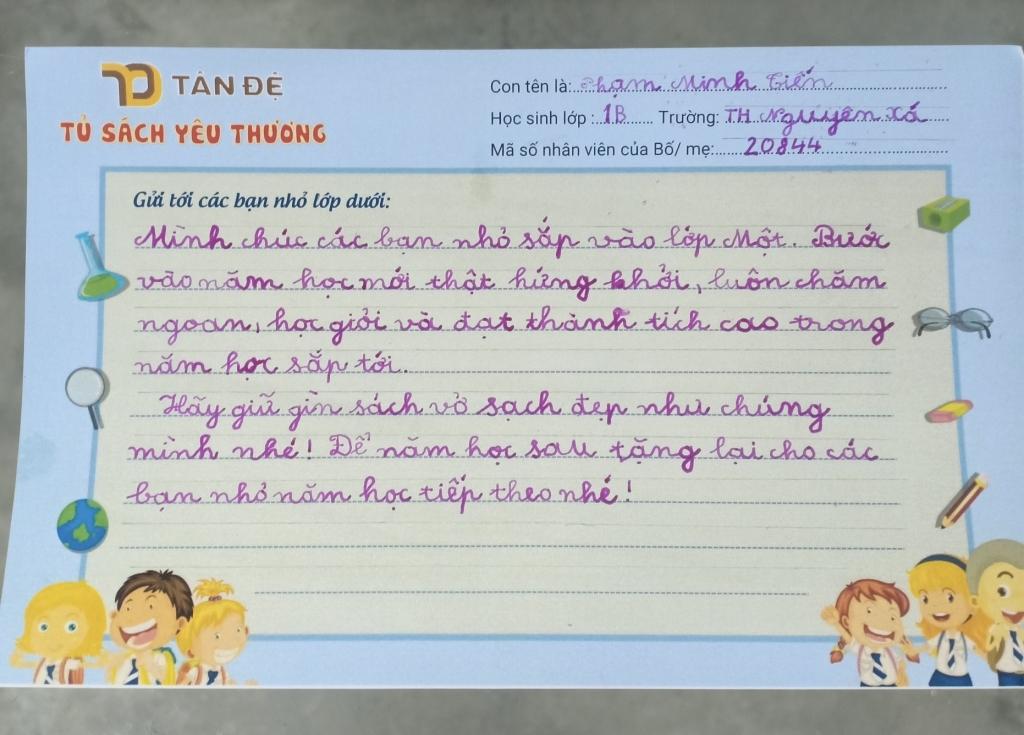 TÂN ĐỆ
TỦ SÁCH YÊU THƯƠNG
Con tên là: Phạm Minh Tiến
Học sinh lớp : 1B Trường: TH Nguyên Xá
Mã số nhân viên của Bố/ mẹ: 20844
Gửi tới các bạn nhỏ lớp dưới:
Mình chúc các bạn nhỏ sắp vào lớp Một. Bước
vào năm học mới thật hứng khởi, luôn chăm
ngoan, học giỏi và đạt thành tích cao trong
năm học sắp tới.
Hãy giữ gìn sách vở sạch đẹp như chúng
mình nhé! Để năm học sau tặng lại cho các
bạn nhỏ năm học tiếp theo nhé!